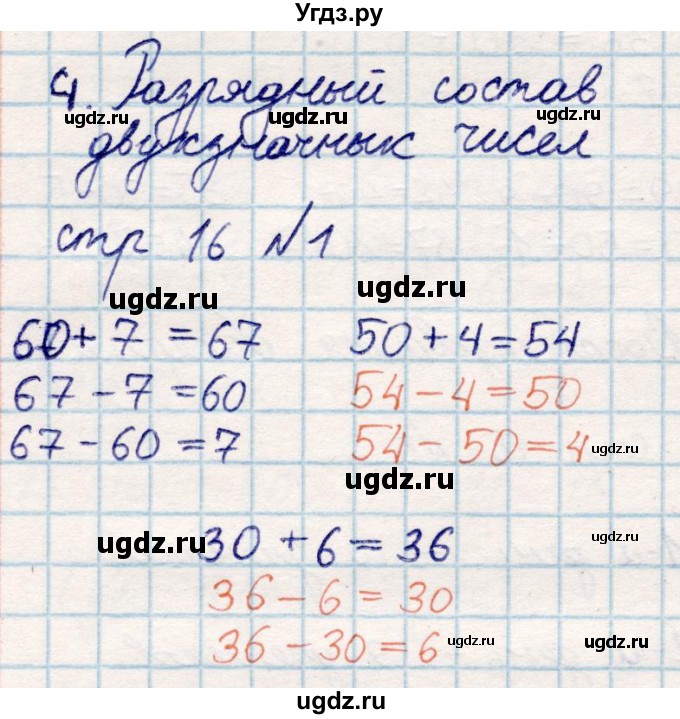 Угдз.ру
4. Разрядный состав
ugdz.ru ugdz.ru ugdz.ru
двузначных чисел
стр 16 №1
ugdz.ru ugdz.ru
60+7=67 50+4=54
67-7=60 54-4=50
67-60=7 54-50=4 ugdz.ru
ugdz.ru
ugdz.ru 30+6=36 ugdz.ru
36-6=30
36-30=6 ugdz.ru ugdz.ru
ugdz.ru